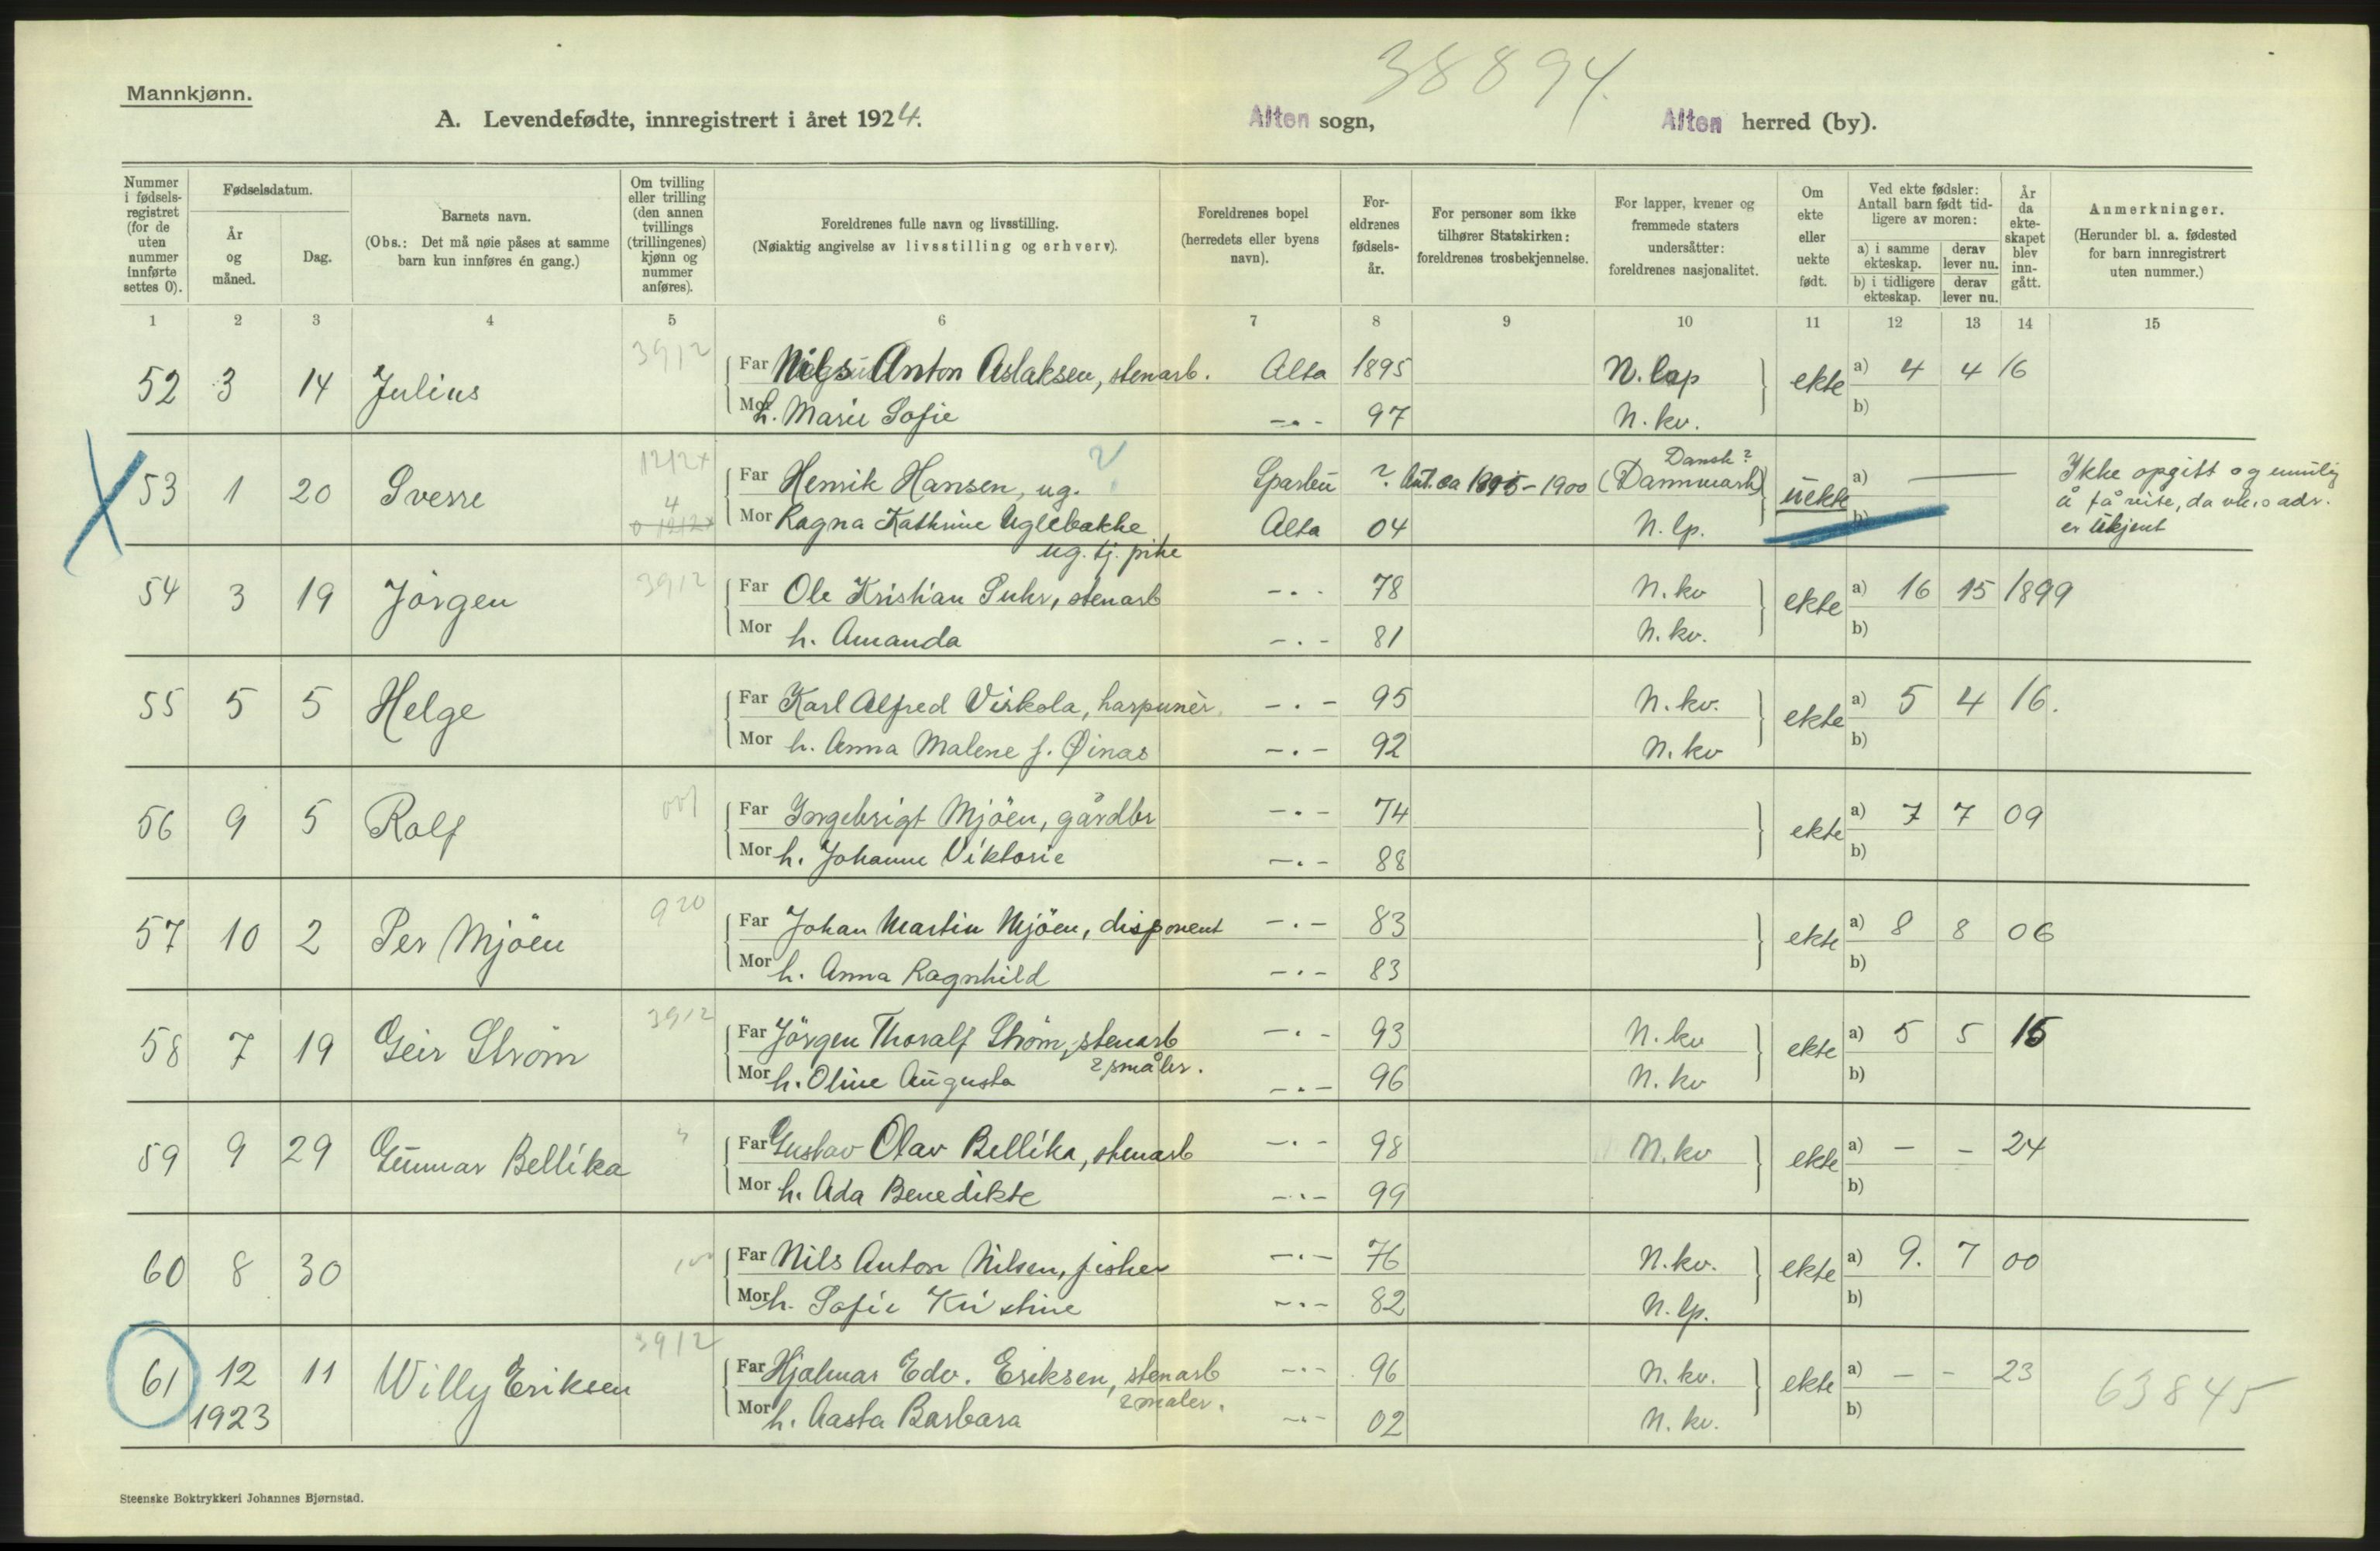 38894.
Mannkjønn.
A. Levendefødte, innregistrert i året 1924. Alten sogn, Alten herred (by).
Nummer i fødsels-registret (for de uten nummer innførte settes 0).
Fødselsdatum.
År og måned.
Dag.
Barnets navn.
(Obs.: Det må nøie påses at samme barn kun innføres én gang.)
Om tvilling eller trilling (den annen tvillings (trillingenes) kjønn og nummer anføres).
Foreldrenes fulle navn og livsstilling.
(Nøiaktig angivelse av livsstilling og erhverv).
Foreldrenes bopel (herredets eller byens navn).
For-eldrenes fødsels-år.
For personer som ikke tilhører Statskirken: foreldrenes trosbekjennelse.
For lapper, kvener og fremmede staters undersåtter: foreldrenes nasjonalitet.
Om ekte eller uekte født.
Ved ekte fødsler: Antall barn født tid-ligere av moren:
a) i samme ekteskap. derav lever nu.
b) i tidligere ekteskap. derav lever nu.
År da ekte-skapet blev inn-gått.
Anmerkninger.
(Herunder bl. a. fødested for barn innregistrert uten nummer.)
1 2 3 4 5 6 7 8 9 10 11 12 13 14 15
52 3 14 Julius 3912 Far Nils Anton Aslaksen, stenarb. Alta 1895 N. lap ekte a) 4 4 16
Mor h. Marie Sofie -"- 97 N. kv. b)
53 1 20 Sverre 1212+ Far Henrik Hansen, ug. Sparbu ? Ant. ca 1895-1900 (Danmark) Dansk? uekte a) — Ikke opgitt og umulig
4 Mor Ragna Kathrine Uglebakke Alta 04 N. lp. b) å få vite, da vk. o adr.
ug. tj. pike er ukjent
54 3 19 Jörgen 3912 Far Ole Kristian Suhr, stenarb -"- 78 N. kv ekte a) 16 15 1899
Mor h. Amanda -"- 81 N. kv. b)
55 5 5 Helge Far Karl Alfred Virkola, harpunèr. -"- 95 N. kv. ekte a) 5 4 16.
Mor h. Anna Malene f. Øinas -"- 92 N. kv b)
56 9 5 Rolf 001 Far Ingebrigt Mjöen, gårdbr -"- 74 ekte a) 7 7 09
Mor h. Johanne Viktorie -"- 88 b)
57 10 2 Per Mjöen 920 Far Johan Martin Mjöen, disponent -"- 83 ekte a) 8 8 06
Mor h. Anna Ragnhild -"- 83 b)
58 7 19 Geir Ström 3912 Far Jörgen Thoralf Ström, stenarb -"- 93 N. kv ekte a) 5 5 15
Mor h. Oline Augusta & småbr. -"- 96 N. kv b)
59 9 29 Gunnar Bellika Far Gustav Olav Bellika, stenarb -"- 98 N. kv ekte a) - - 24
Mor h. Ada Benedikte -"- 99 b)
60 8 30 Far Nils Anton Nilsen, fisker -"- 76 N. kv. ekte a) 9. 7 00
Mor h. Sofie Kristine -"- 82 N. lp. b)
61 12 11 Willy Eriksen 3912 Far Hjalmar Edv. Eriksen, stenarb -"- 96 N. kv. ekte a) - - 23 63845
1923 Mor h. Aasta Barbara & maler. -"- 02 N. kv. b)
Steenske Boktrykkeri Johannes Bjørnstad.